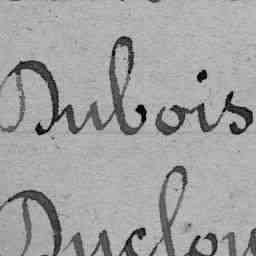 Dubois
Duclou